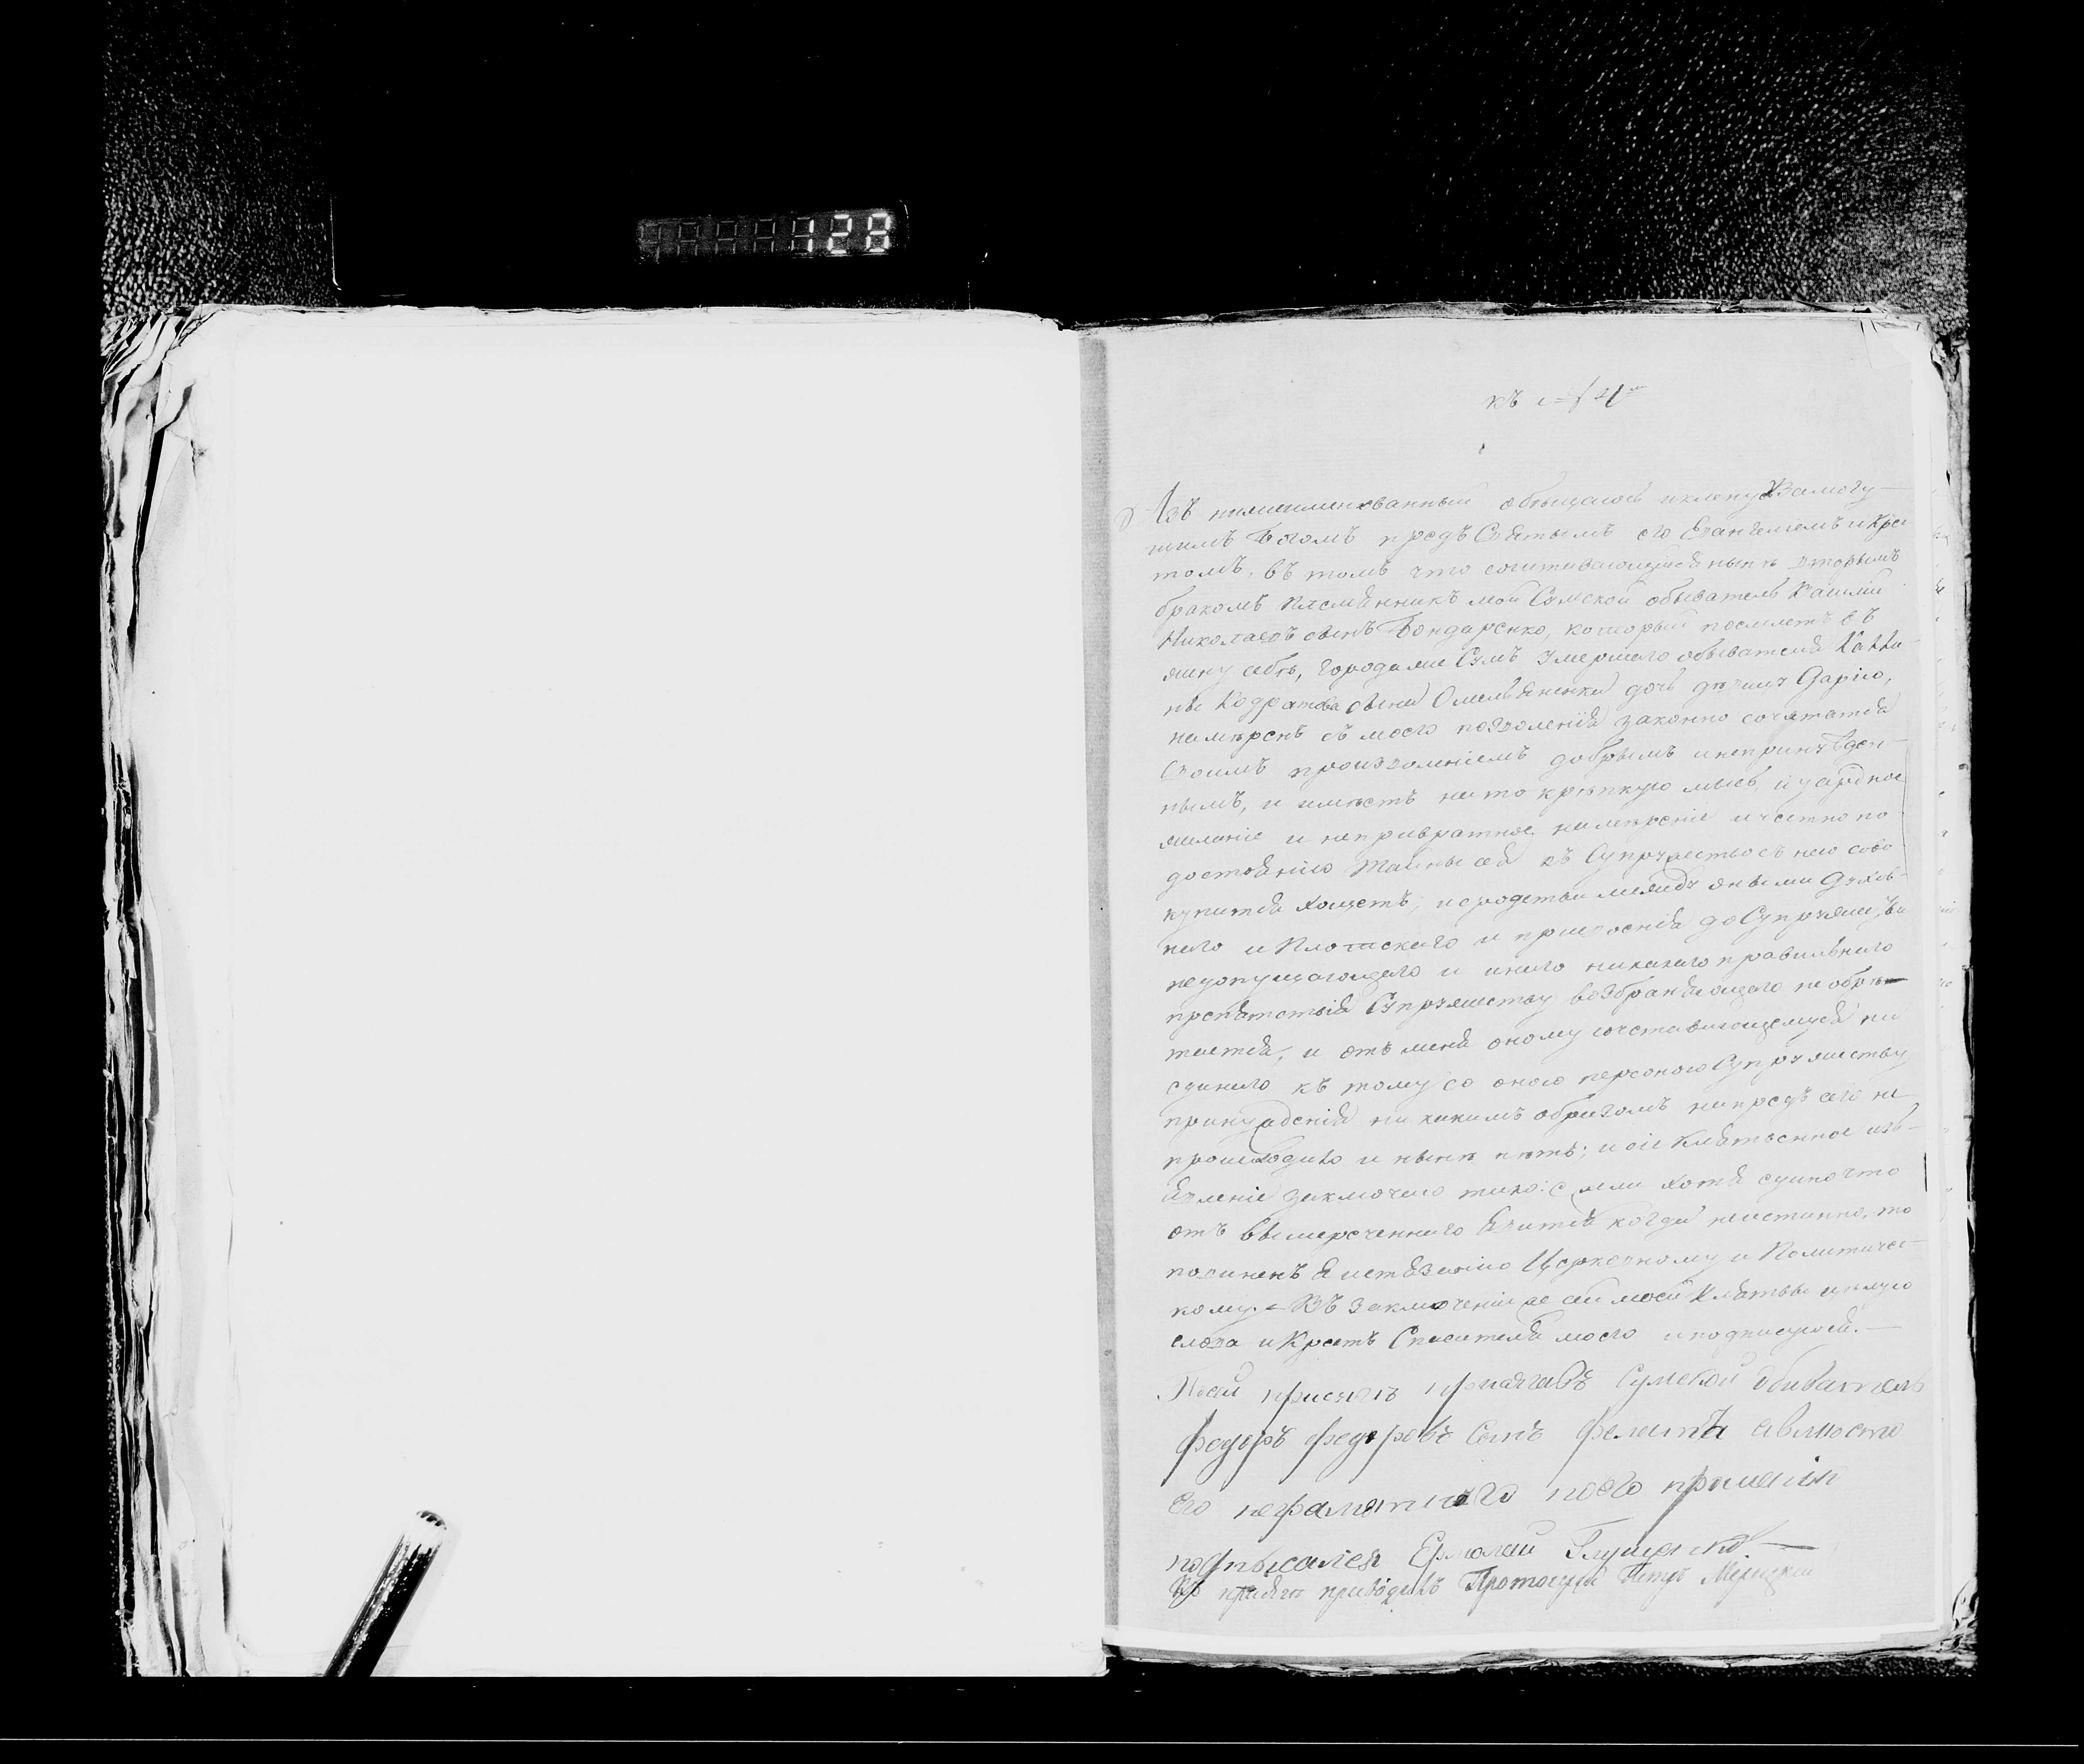 128
къ
Азъ нижеименованный обѣщаюсь и кленусь Всемогу-
щимъ Богомъ предъ Святымъ его Евангелиемъ и Крес
томъ, въ томъ что сочитавающийся нынѣ вторымъ
бракомъ племянникъ мой Сумской обыватель Василий
Николаевъ сынъ Бондаренко, который поемлетъ въ
жину себѣ, города же Сумъ умершаго обывателя
Кодратова сына Омельяненка дочь дѣвицу Дарию,
намѣренъ съ моего позволения законно сочетатся
своимъ произволениемъ добрымъ и непринужден-
нымъ, и имѣетъ на то крѣпкую мысль, и усердное
желание и непривратное намѣрение и честно по
достоянию тайны сея въ Супружество съ нею сово
купится хощетъ; и сродства между оными Духов-
наго и Плотскаго и присвоения до Супружества
недопущающаго и инаго никакаго правильнаго
препятствия Супружеству возбраняющаго не обрѣ-
тается, и отъ меня оному сочетавающемуся ни
единаго къ тому со оною персоною Супружеству
принуждения никакимъ образомъ напредъ сего не
происходило и нынѣ нѣтъ; и сие клятвенное изъ-
явление заключаю тако: ежели хотя едино что
отъ вышереченнаго явится когда неистинно, то
повиненъ я истязанию Церковному и Политичес-
кому. = Въ заключение же сей моей клятвы цѣлую
слова и Крестъ Спасителя моего и подписуюсь. —
По сей присяги присягавъ Сумской обиватель
Федоръ Федоровъ Синъ а вмѣсто
его неграмотнаго по его прошению
подписался Ермолай Глущенко —
Къ присягѣ приводилъ Протоиерей Петръ